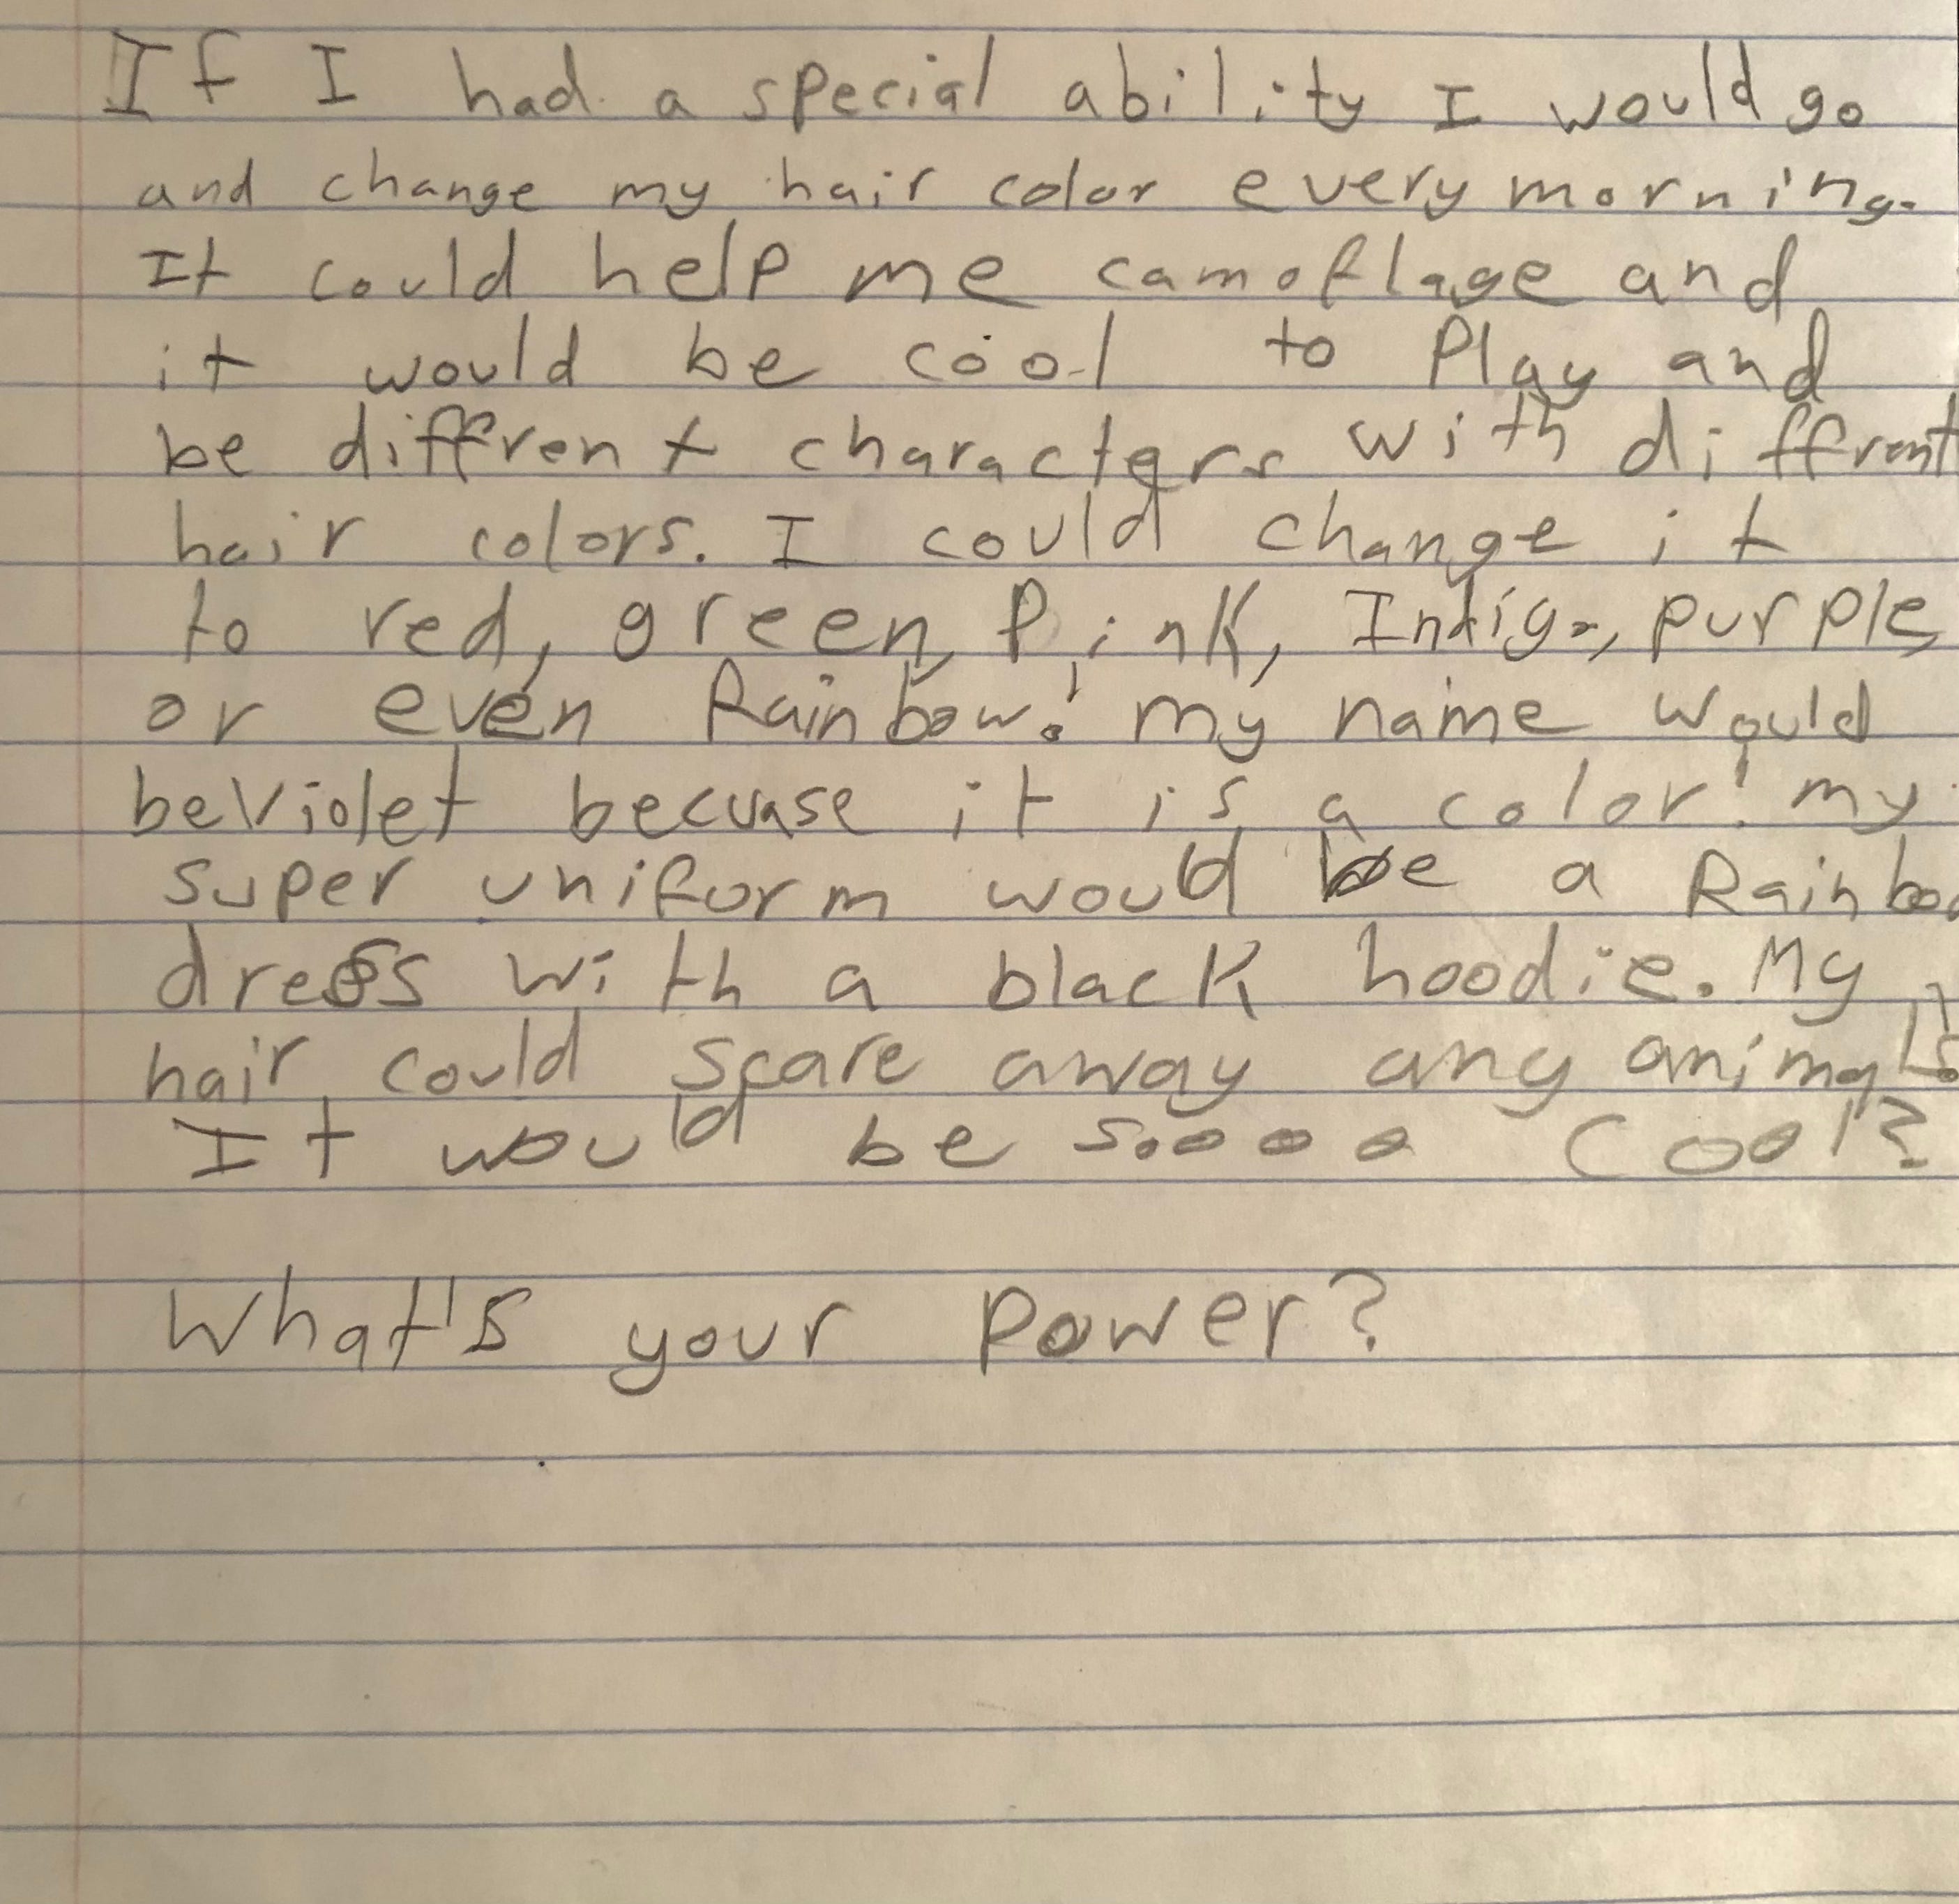 If I had a special ability I would go
and change my hair color every morning.
It could help me camoflage and
it would be cool to Play and
be diffrent characters with diffrent
hair colors. I could change it
to red, green, Pink, Indigo, purple,
or even Rainbow! my name would
be Violet becuase it is a color! my
super uniform would be a
dress with a black hoodie. My
hair could scare away any animals!
It would be soooo cool?
What's your power?